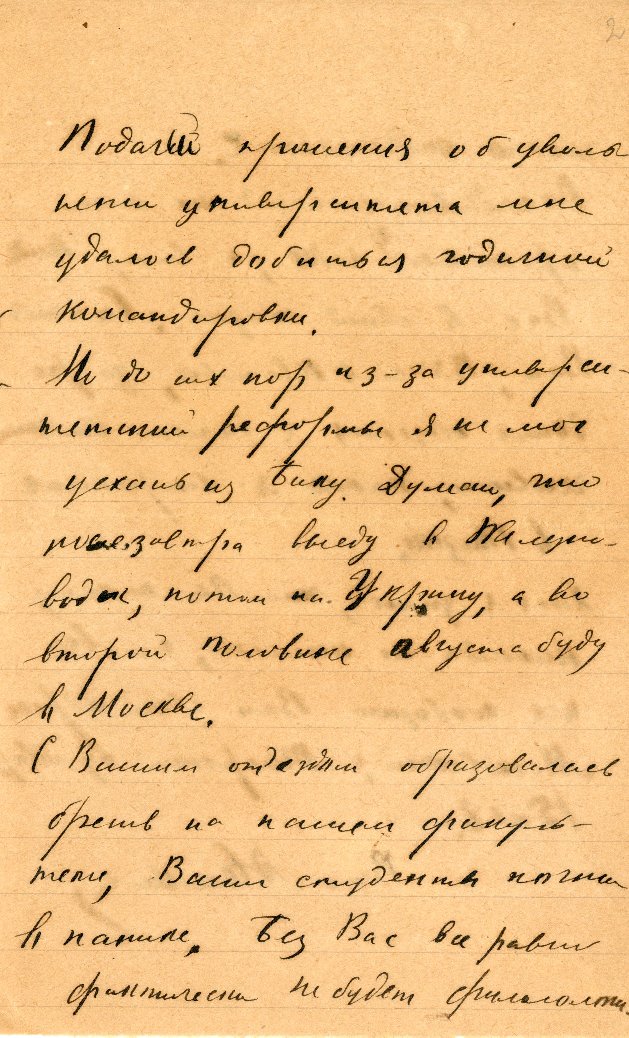 2
Подачей прошения об уволь
нении университета мне
удалось добиться годичной
командировки.
Но до сих пор из-за универси-
тетской реформы я не мог
уехать из Баку. Думаю, что
послезавтра выеду в Железно-
водск, потом на Украину, а во
второй половине августа буду
в Москве.
С Вашим отъездом образовалась
брешь на нашем факуль-
тете, Ваши студенты
в панике. Без Вас все равно
фактически не будет филологии.